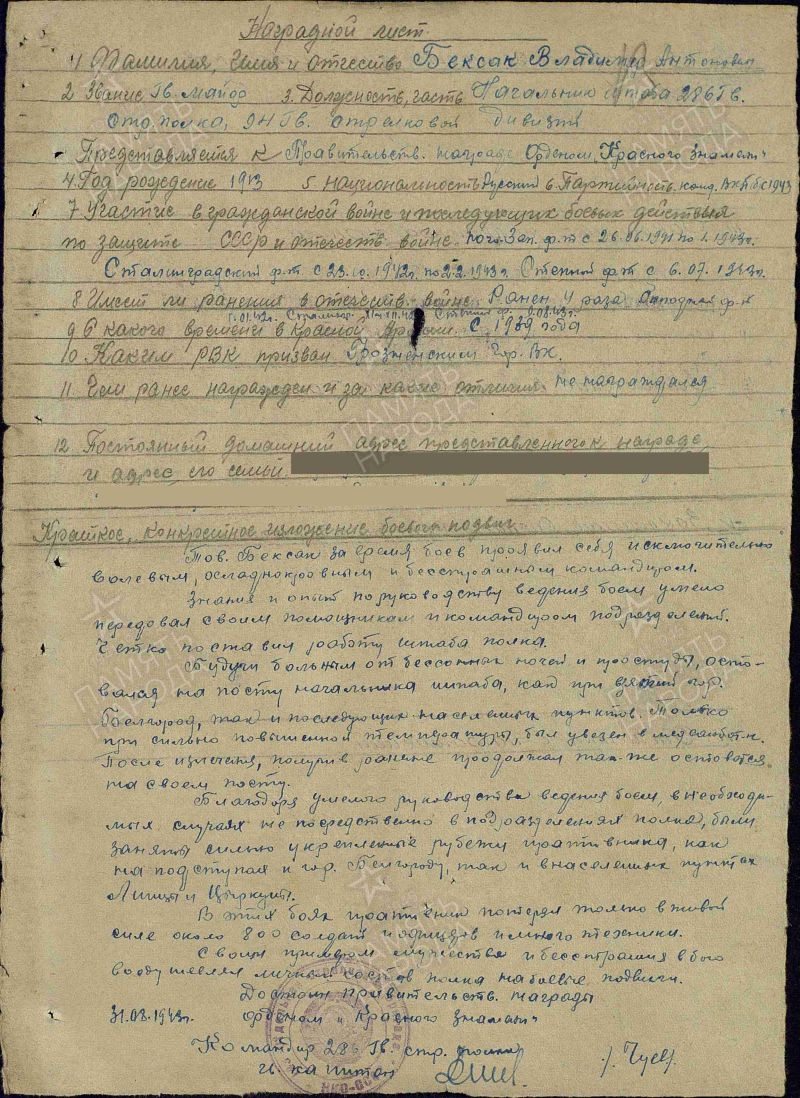 Наградной лист
1 Фамилия, Имя и отчество Бексак Владимир Антонович
2 Звание Гв. майор 3. Должность, часть Начальник штаба 286 Гв.
стр. полка, 94 Гв. стрелковой дивизии
Представляется к Правительств. награде Орденом "Красного Знамени"
4. Год рождение 1913 5 национальность Русский 6 Партийность. канд. ВКПбс 1943
7 Участие в гражданской войне и последующих боевых действия
по защите СССР и отечеств. войне. Юго-Зап. ф-т с 26.06.1941 по 1.1943г.
Сталинградский ф-т с 23.10.1942г. по 2.2.1943г. Степной ф-т с 6.07.1943г.
8 Имеет ли ранения в отечеств. войне Ранен 4 раза Западный ф-т
9 С какого времени в Красной Армии. С 1939 года
10. Каким РВК призван Грозненским Гор. ВК.
11 Чем ранее награжден и за какие отличия не награждался
12 Постоянный домашний адрес представленного к награде
и адрес его семьи.
Краткое, конкретное изложение боевого подвига
Тов. Бексак за время боев проявил себя исключительно
волевым, хладнокровным и бесстрашным командиром.
Знания и опыт по руководству ведения боем умело
передовал своим помощникам и командиром подразделений.
Четко поставил работу штаба полка.
Будучи больным от бессонных ночей и простуды, оста-
вался на посту начальника штаба, как при взятии гор.
Белгород, так и последующих населенных пунктов. Только
при сильно повышенной температуры, был увезен в медсанбат.
После излечения, получив ранение продолжал так-же оставатся
на своем посту.
Благодоря умелого руководства ведения боем, в необходи-
мых случаях не посредственно в подразделениях полка, были
заняты сильно укрепленные рубежи противника, как
на подступах к гор. Белгороду, так и в населенных пунктах
Липцы и Циркуны.
В этих боях противник потерял только в живой
силе около 800 солдат и офицеров и много техники.
Своим примером мужества и бесстрашия в бою
воодушевлял личный состав полка на боевые подвиги.
Достоин правительств. награды
31.08.1943г. орденом "Красного Знамени"
Командир 286 Гв. стр. полка
Гв. капитан /. Чуев/.
ПАМЯТЬ НАРОДА